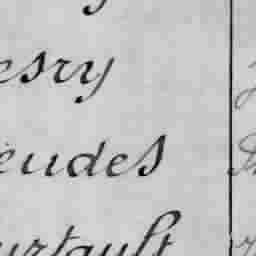 esry
eudes
urtault